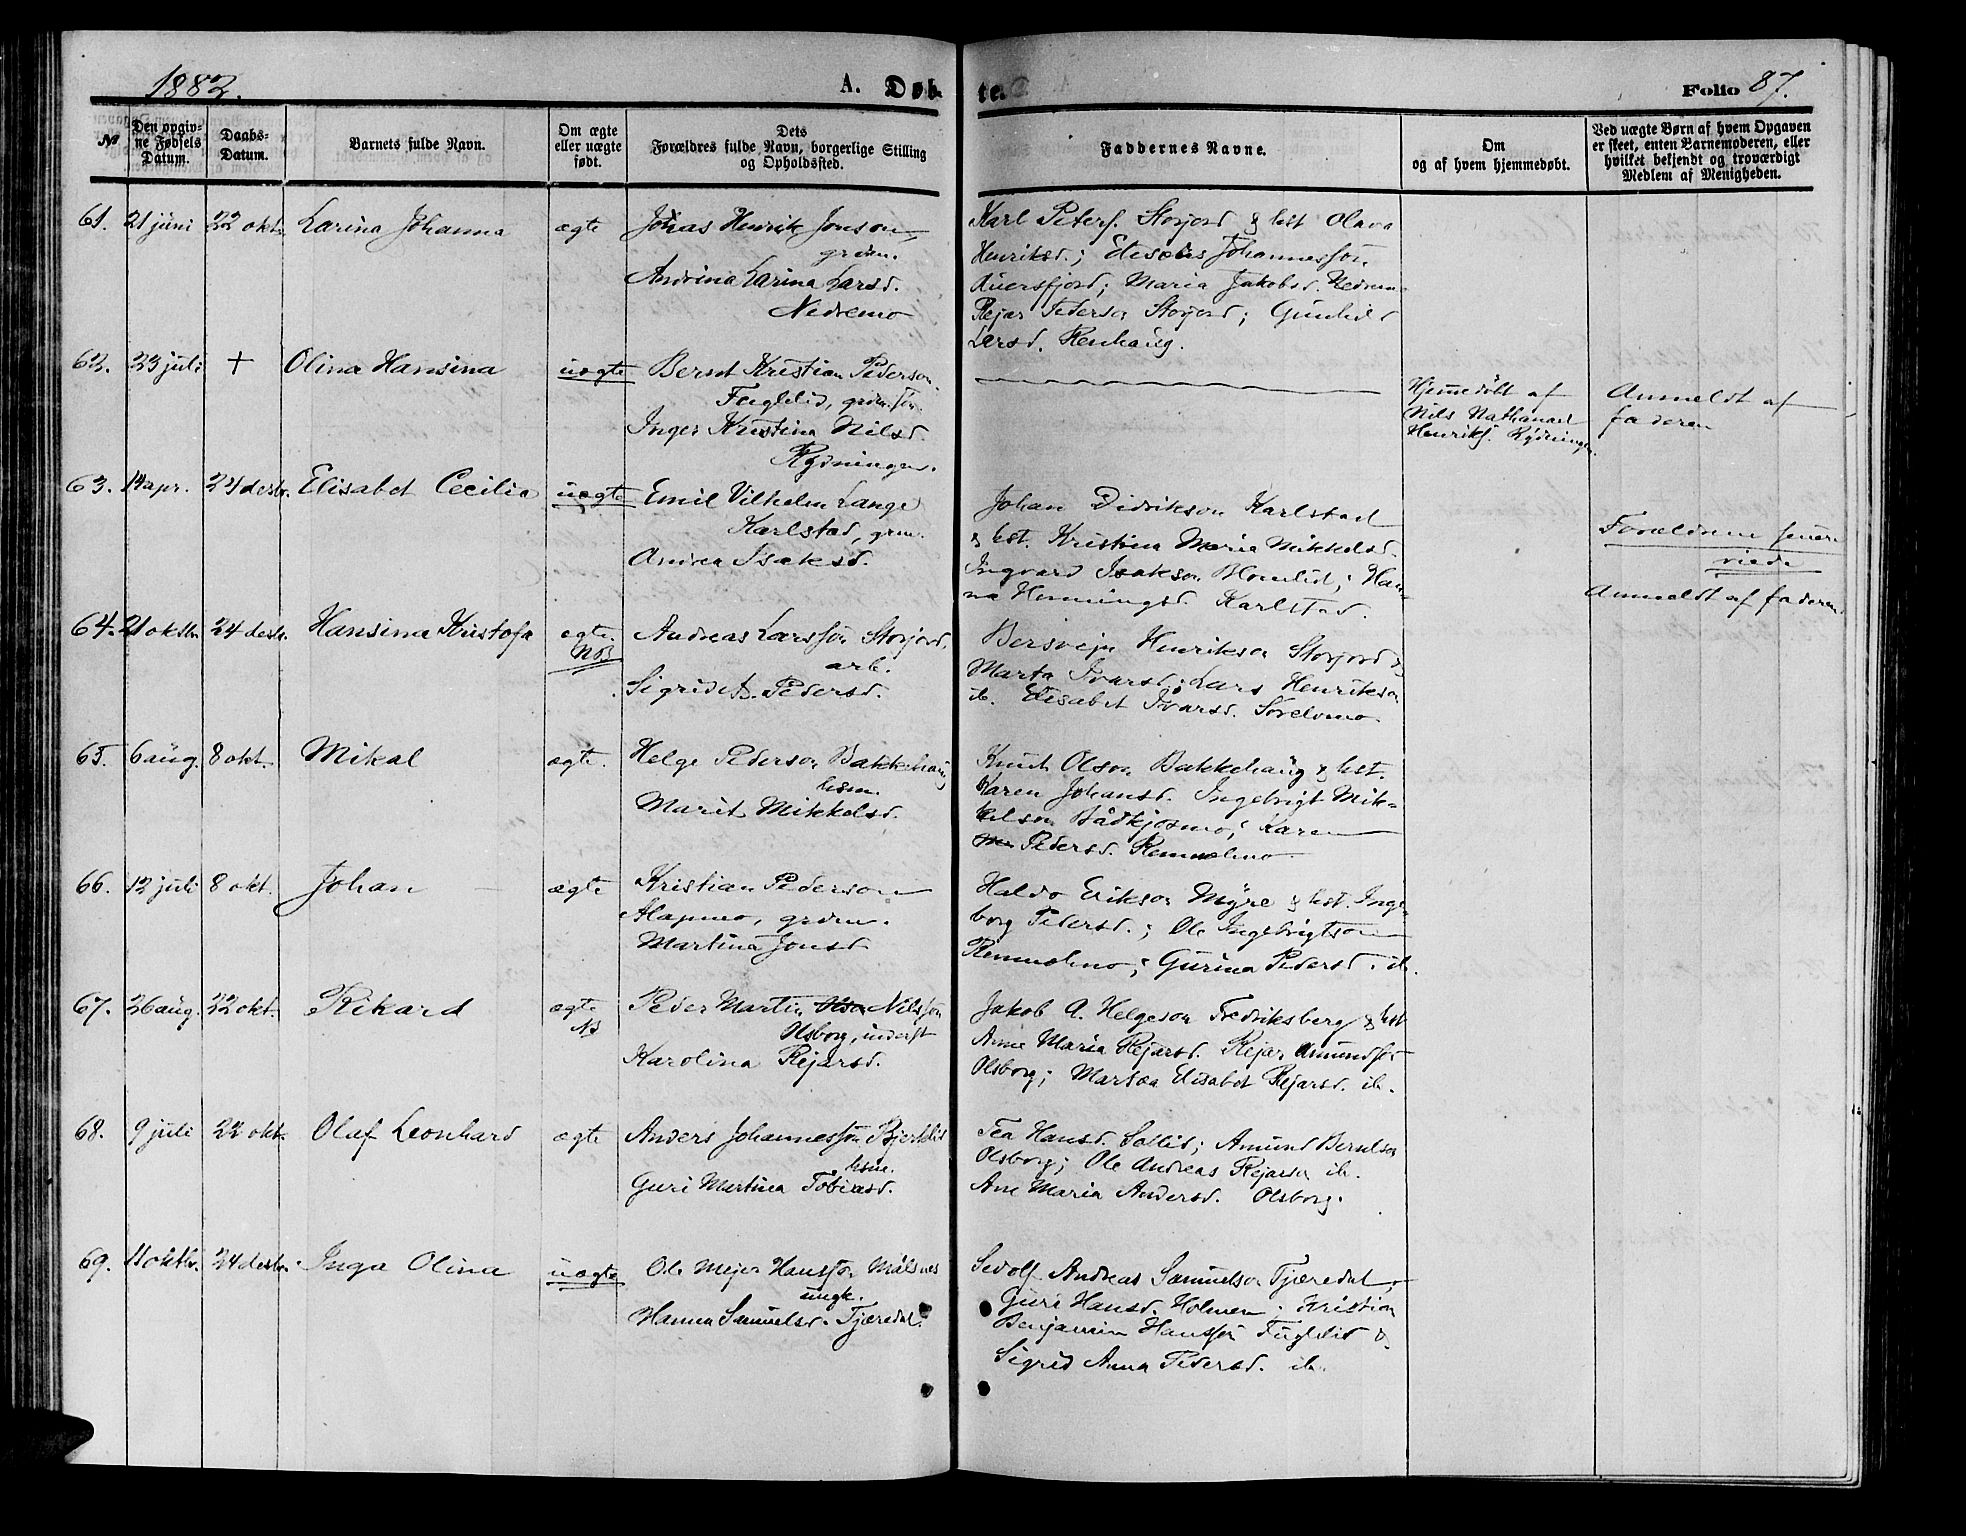 1882. A. Døb- te. Folio 87.
№ Den opgiv- ne Fødsels Datum. Daabs- Datum. Barnets fulde Navn. Om ægte eller uægte født. Dets Forældres fulde Navn, borgerlige Stilling og Opholdssted. Faddernes Navne. Om og af hvem hjemmedøbt. Ved uægte Børn af hvem Opgaven er skeet, enten Barnemoderen, eller hvilket bekjendt og troværdigt Medlem af Menigheden.
61. 21 juni 22 okt. Larina Johanna ægte Jonas Henrik Jonson,
grdm.
Andrina Larina Larsd.
Nedremo
Karl Peters. Storjord & hst Olava
Henriksd.; Johannesson
Aursfjord; Maria Jakobsd. Nedrem-
Rejar Pederson Storjord; Gunhild
Larsd. Renhaug.
62. 23 juli + Olina Hansina uægte Bernt Kristian Pederson
Fuglelid, grdm. søn
Inger Kristina Nilsd.
Rydningen.
Hjemmedøbt af
Nils Nathanael
Henriks. Rydningen.
Anmeldt af
faderen
63. 14 apr. 24 desbr. Elisabet Cecilie uægte Emil Vilhelm Lange
Karlstad, grdm.
Andrea Isaksd.
Johan Didrikson Karlstad
& hst. Kristina Maria Mikkelsd.
Ingvard Isakson Blomlid; Han-
na Henningsd. Karlstad.
Forældrene senere
viede
Anmeldt af faderen
64. 21 oktbr. 24 desbr. Hansina Kristofa ægte. Andreas Larsson Storjord,
NB arb.
Sigrid Pedersd.
Bersvejn Henrikson Storjord &
Marta Ivarsd. Lars Henrikson
ib. Elisabet Ivarsd. Sørelvmo.
65. 6 aug. 8 okt. Mikal ægte. Helge Pederson Bakkehaug
hsm.
Marit Mikkelsd.
Knut Olson Bakkehaug & hst.
Karen Johansd. Ingebrigt Mik-
kelson Bådkjosmo; Karen
Pedersd. Remmelmo.
66. 12 juli 8 okt. Johan ægte Kristian Pederson
Alapmo, grdm.
Martina Jonsd.
Haldo Erikson Myre & hst. Inge-
borg Pedersd.; Ole Ingebrigtson
Remmelmo; Gurina Pedersd. ib.
67. 26 aug. 22 okt. Rikard ægte Peder Martin Olson Nilsson
NB Olsborg, inderst
Karolina Rejarsd.
Jakob A. Helgeson Fredriksberg & hst
Anne Maria Rejarsd. Rejar Amundson
Olsborg; Elisabet Rejarsd. ib.
68. 9 juli 22 okt. Olaf Leonhard ægte Anders Johannesson Bjerklid
hsm.
Guri Martina Tobiasd.
Tea Hansd. Sollid; Amund Berntson
Olsborg; Ole Andreas Rejarson ib.
Ane Maria Andersd. Olsborg.
69. 11 oktbr. 24 desbr. Inga Olina uægte Ole Mejer Hansson Målsnes
ungk.
Hanna Samuelsd. Tjæredal.
Sedolf Andreas Samuelson Tjæredal,
Guri Hansd. Holmen. Kristian
Benjamin Hansson Fuglelid &
Sigrid Anna Pedersd. ib.